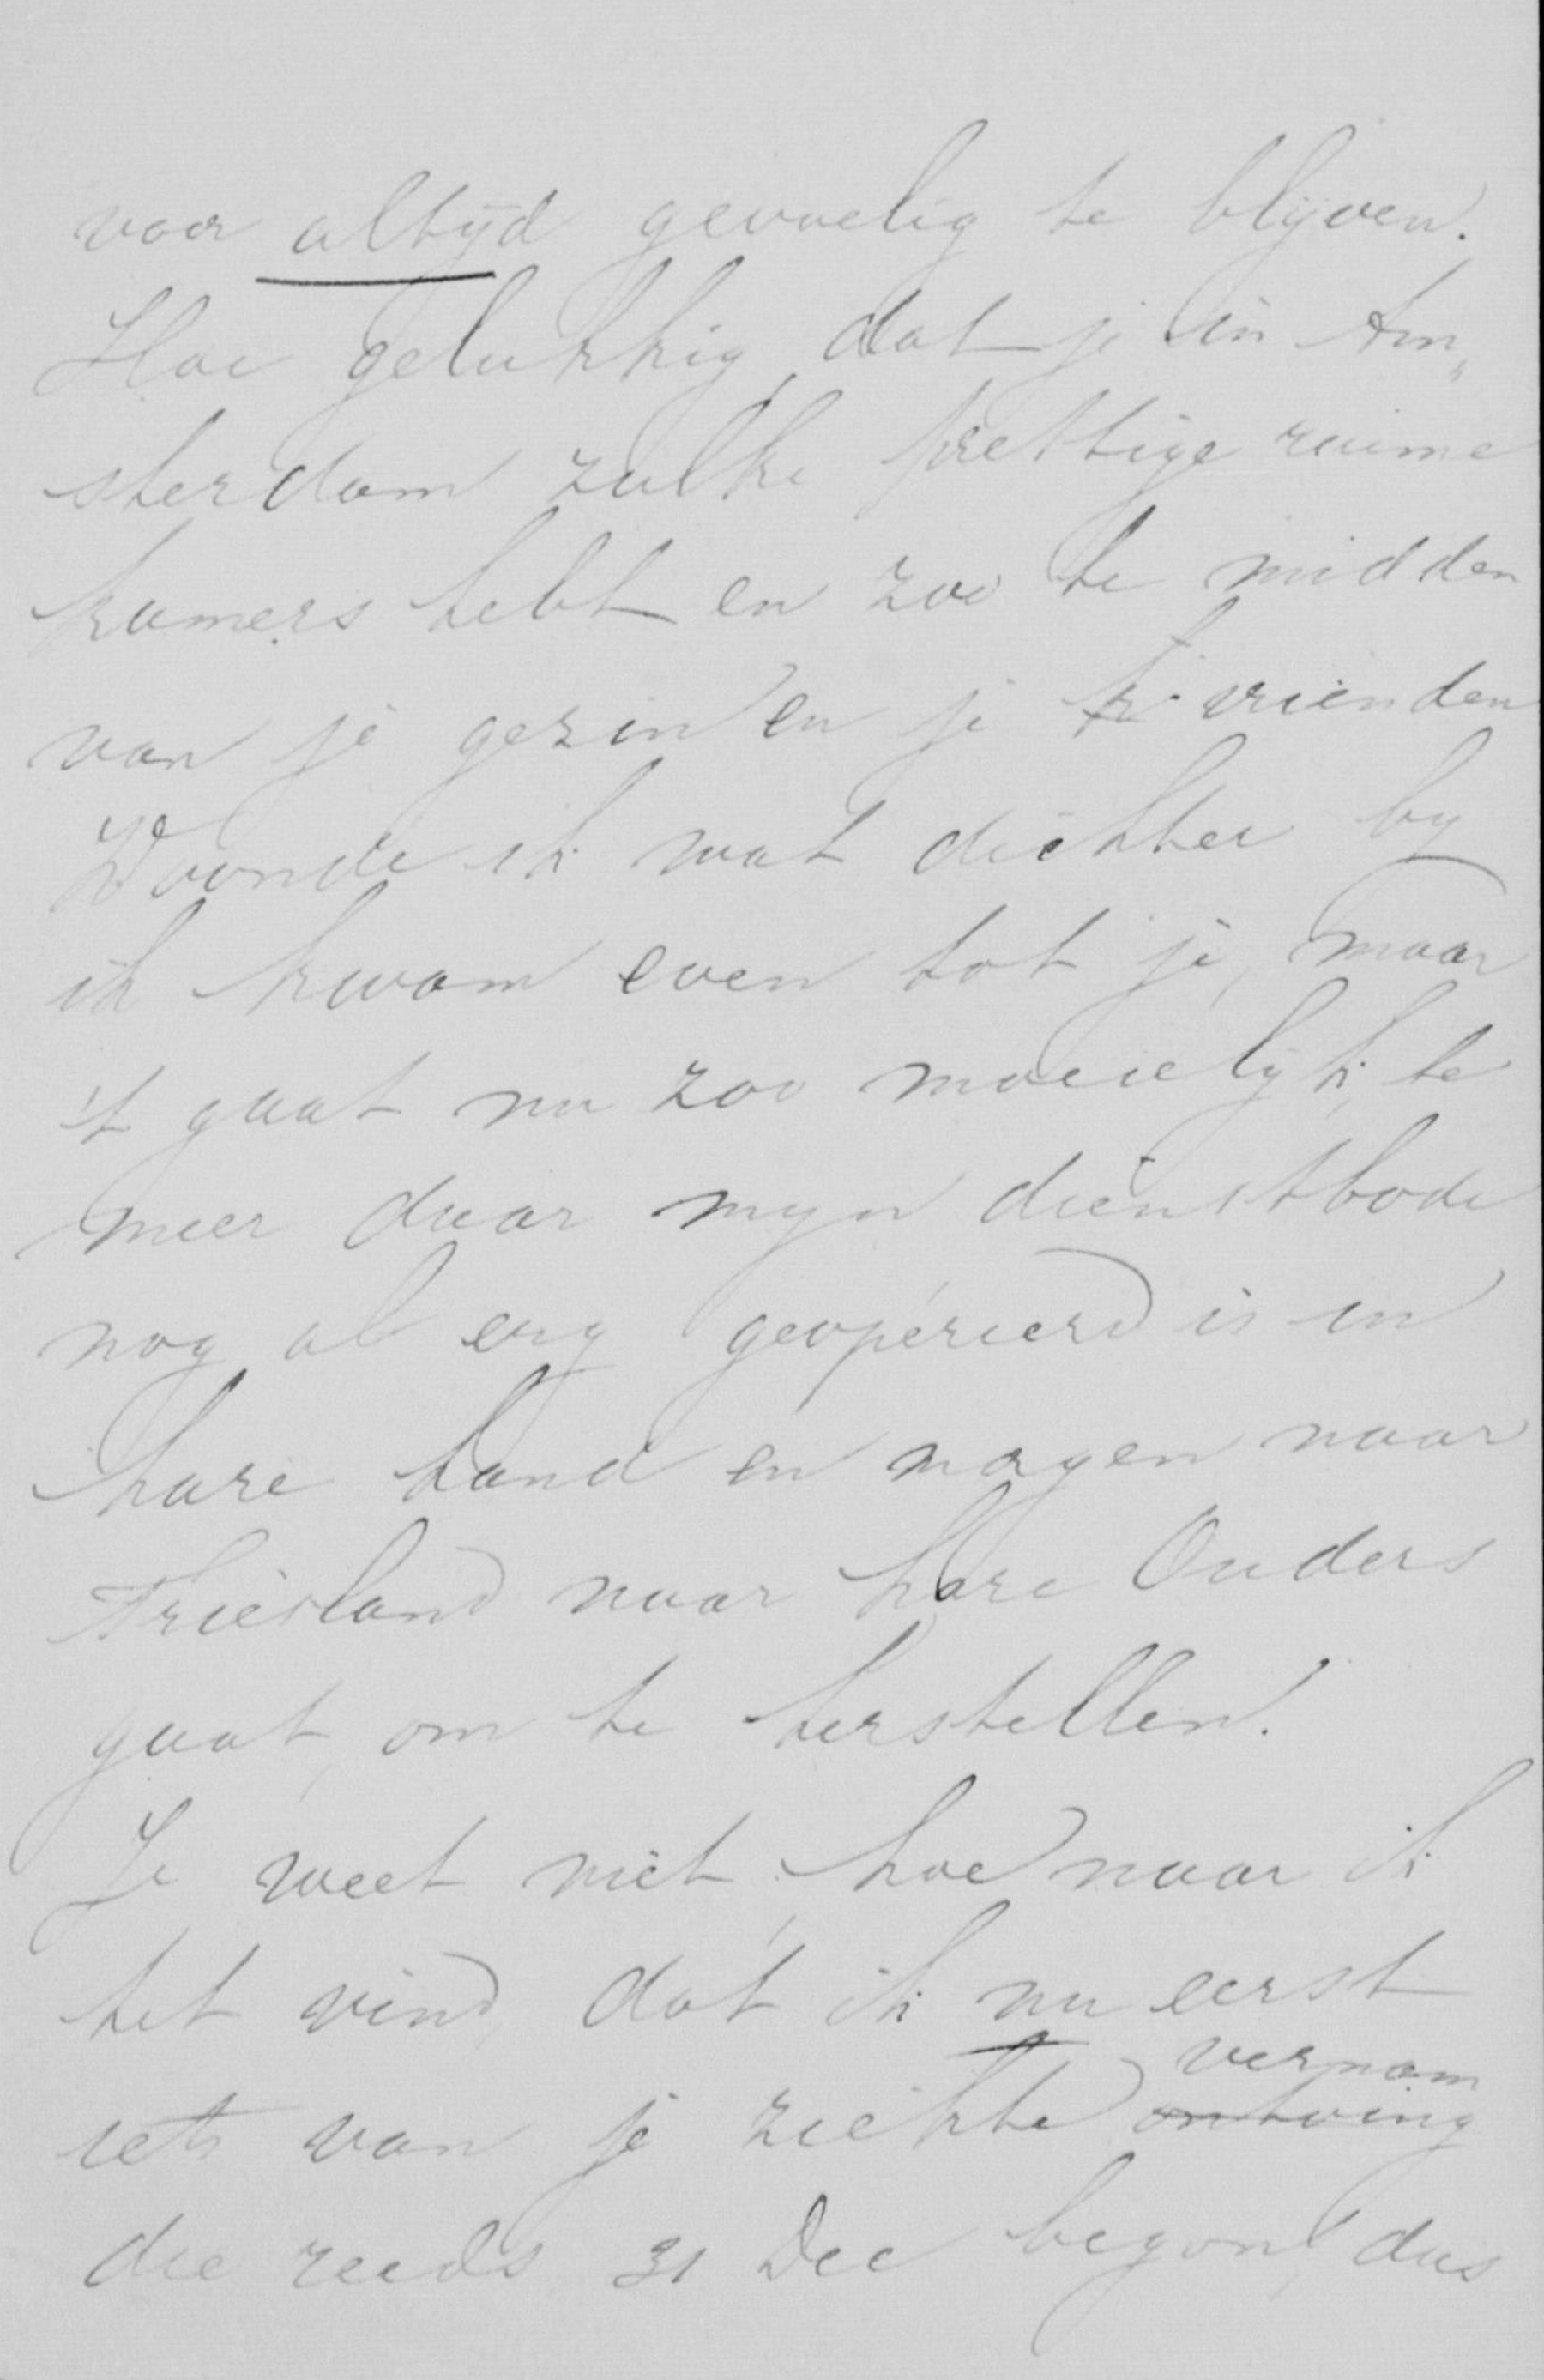 voor altijd gevoelig te blijven.
Hoe gelukkig, dat je in Am„
sterdam zulke prettige ruime
kamers hebt en zoo te midden
van je gezin en je k vrienden
Woonde ik wat dichter by
ik kwam even tot je, maar
't gaat nu zoo moeielyk, te
meer daar myn dienstbode
nog al erg geopéreerd is in
hare hand en morgen naar
Friesland naar hare Ouders
gaat, om te herstellen.
Je weet niet, hoe naar ik
het vind, dat ik nu eerst
vernam
iets van je ziekte ontving
die reeds 31 Dec begon, dus